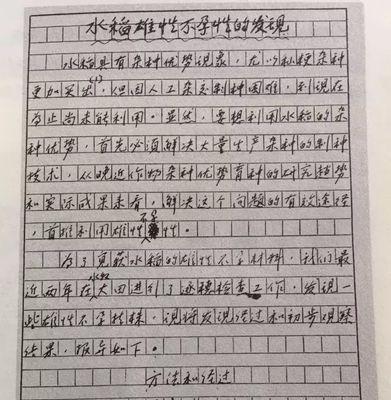 水稻雄性不孕性的发现
水稻具有杂种优势现象，尤以籼粳杂种
更加突出(1)，但因人工杂交制种困难，到现在
为止尚未能利用。显然，要想利用水稻的杂
种优势，首先必须解决大量生产杂种的制种
技术，从晚近作物杂种优势育种的研究趋势
和实际成果来看，解决这个问题的有效途径
，首推利用雄性不孕性。
为了获得水稻的雄性不孕材料，我们最
近两年在水稻大田进行了逐穗检查工作，发现一
些雄性不孕植株，现将发现经过和初步观察
结果，报导如下。
方法和经过